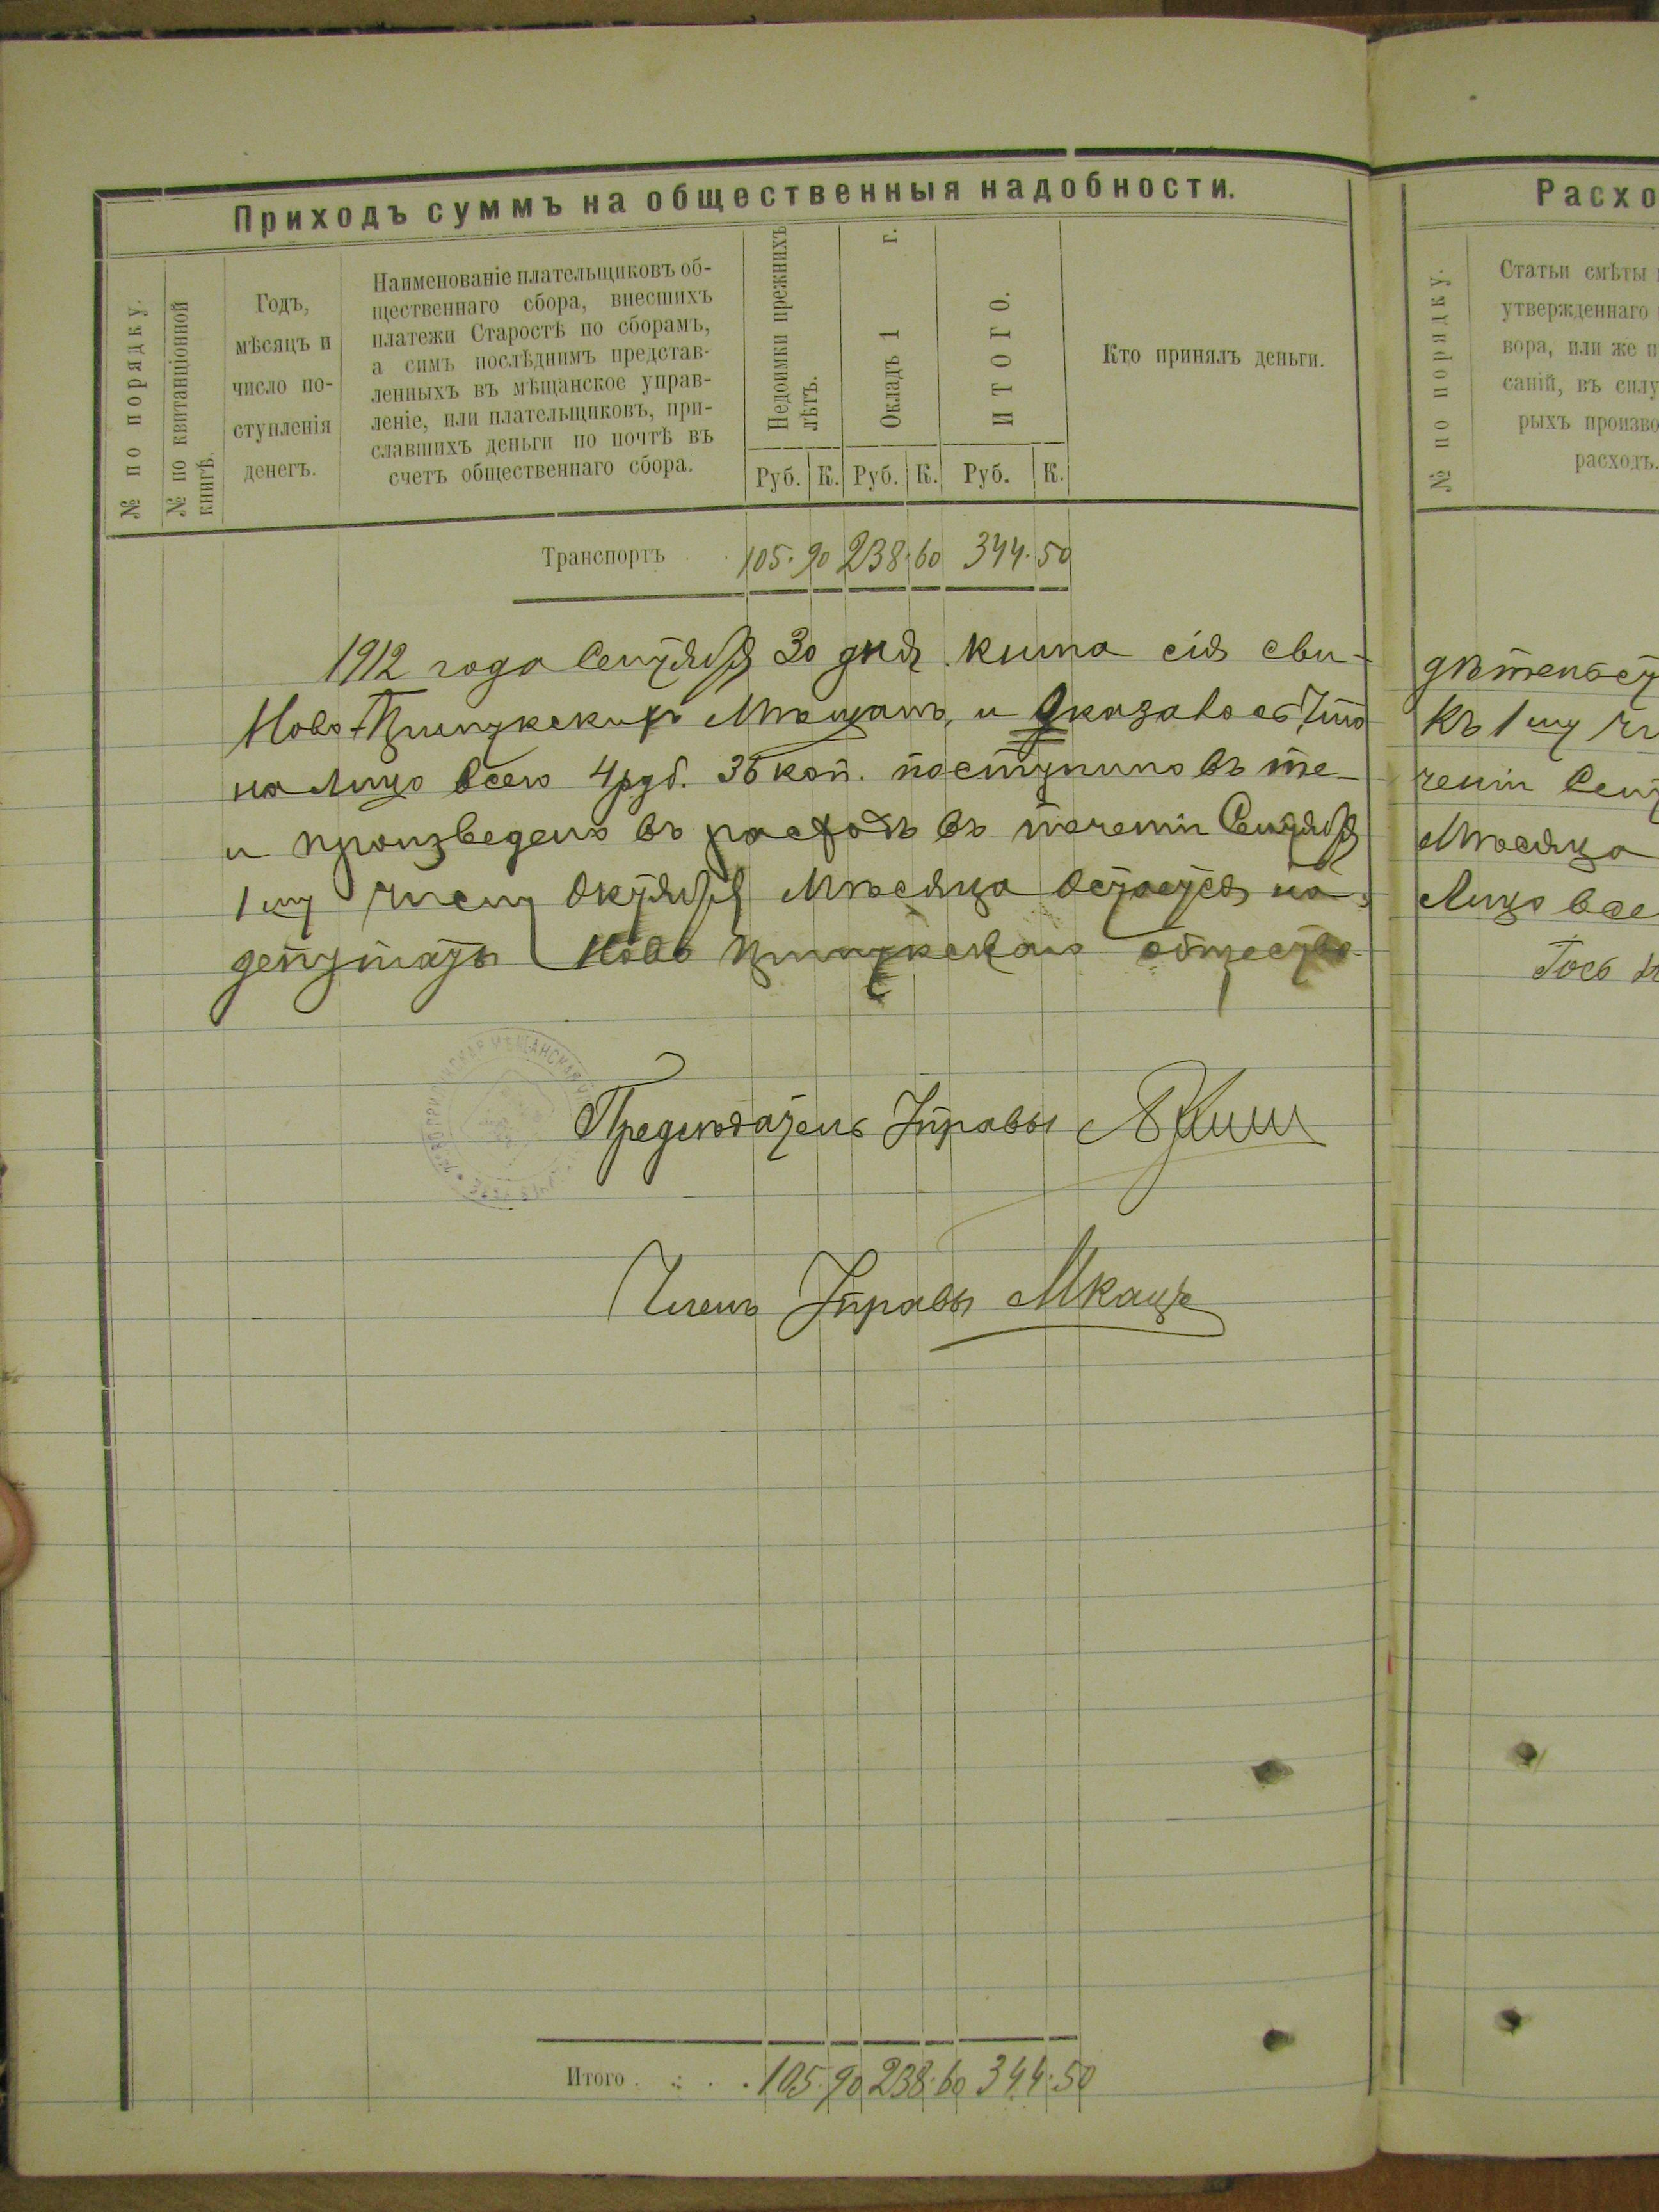 Приходъ суммъ на общественныя надобности.
№ по порядку.
№ по квитанціонной
книгѣ.
Годъ,
мѣсяцъ и
число по-
ступленія
денегъ.
Наименованіе плательщиковъ об-
щественнаго сбора, внесшихъ
платежи Старостѣ по сборамъ,
а симъ послѣднимъ представ-
ленныхъ въ мѣщанское управ-
леніе, или плательщиковъ, при-
славшихъ деньги по почтѣ въ
счетъ общественнаго сбора.
Недоимки прежнихъ
лѣтъ.
Окладъ 1 г.
ИТОГО.
Кто принялъ деньги.
Руб. К. Руб. К. Руб. К.
Транспортъ 105. 90 238. 60 344. 50
1912 года Сентября 30 дня. книга сія сви-
Ново- Мѣщанъ, и Оказалось, Что
на лицо всего 4 руб. 35 коп. поступило въ те-
и произведено въ расходъ въ теченіи Сентября
1 му числу Октября Мѣсяца остается на
депутаты Ново общества
Предсѣдатель Управы
Членъ Управы МКацъ
Итого 105. 90 238. 60 344. 50
Расхо
№ по порядку.
Статьи смѣты
утвержденнаго
вора, или же п
саній, въ силу
рыхъ произво
расходъ.
дѣтельст
Къ 1 му чи
ченіи Сент
Мѣсяца
Лицо все